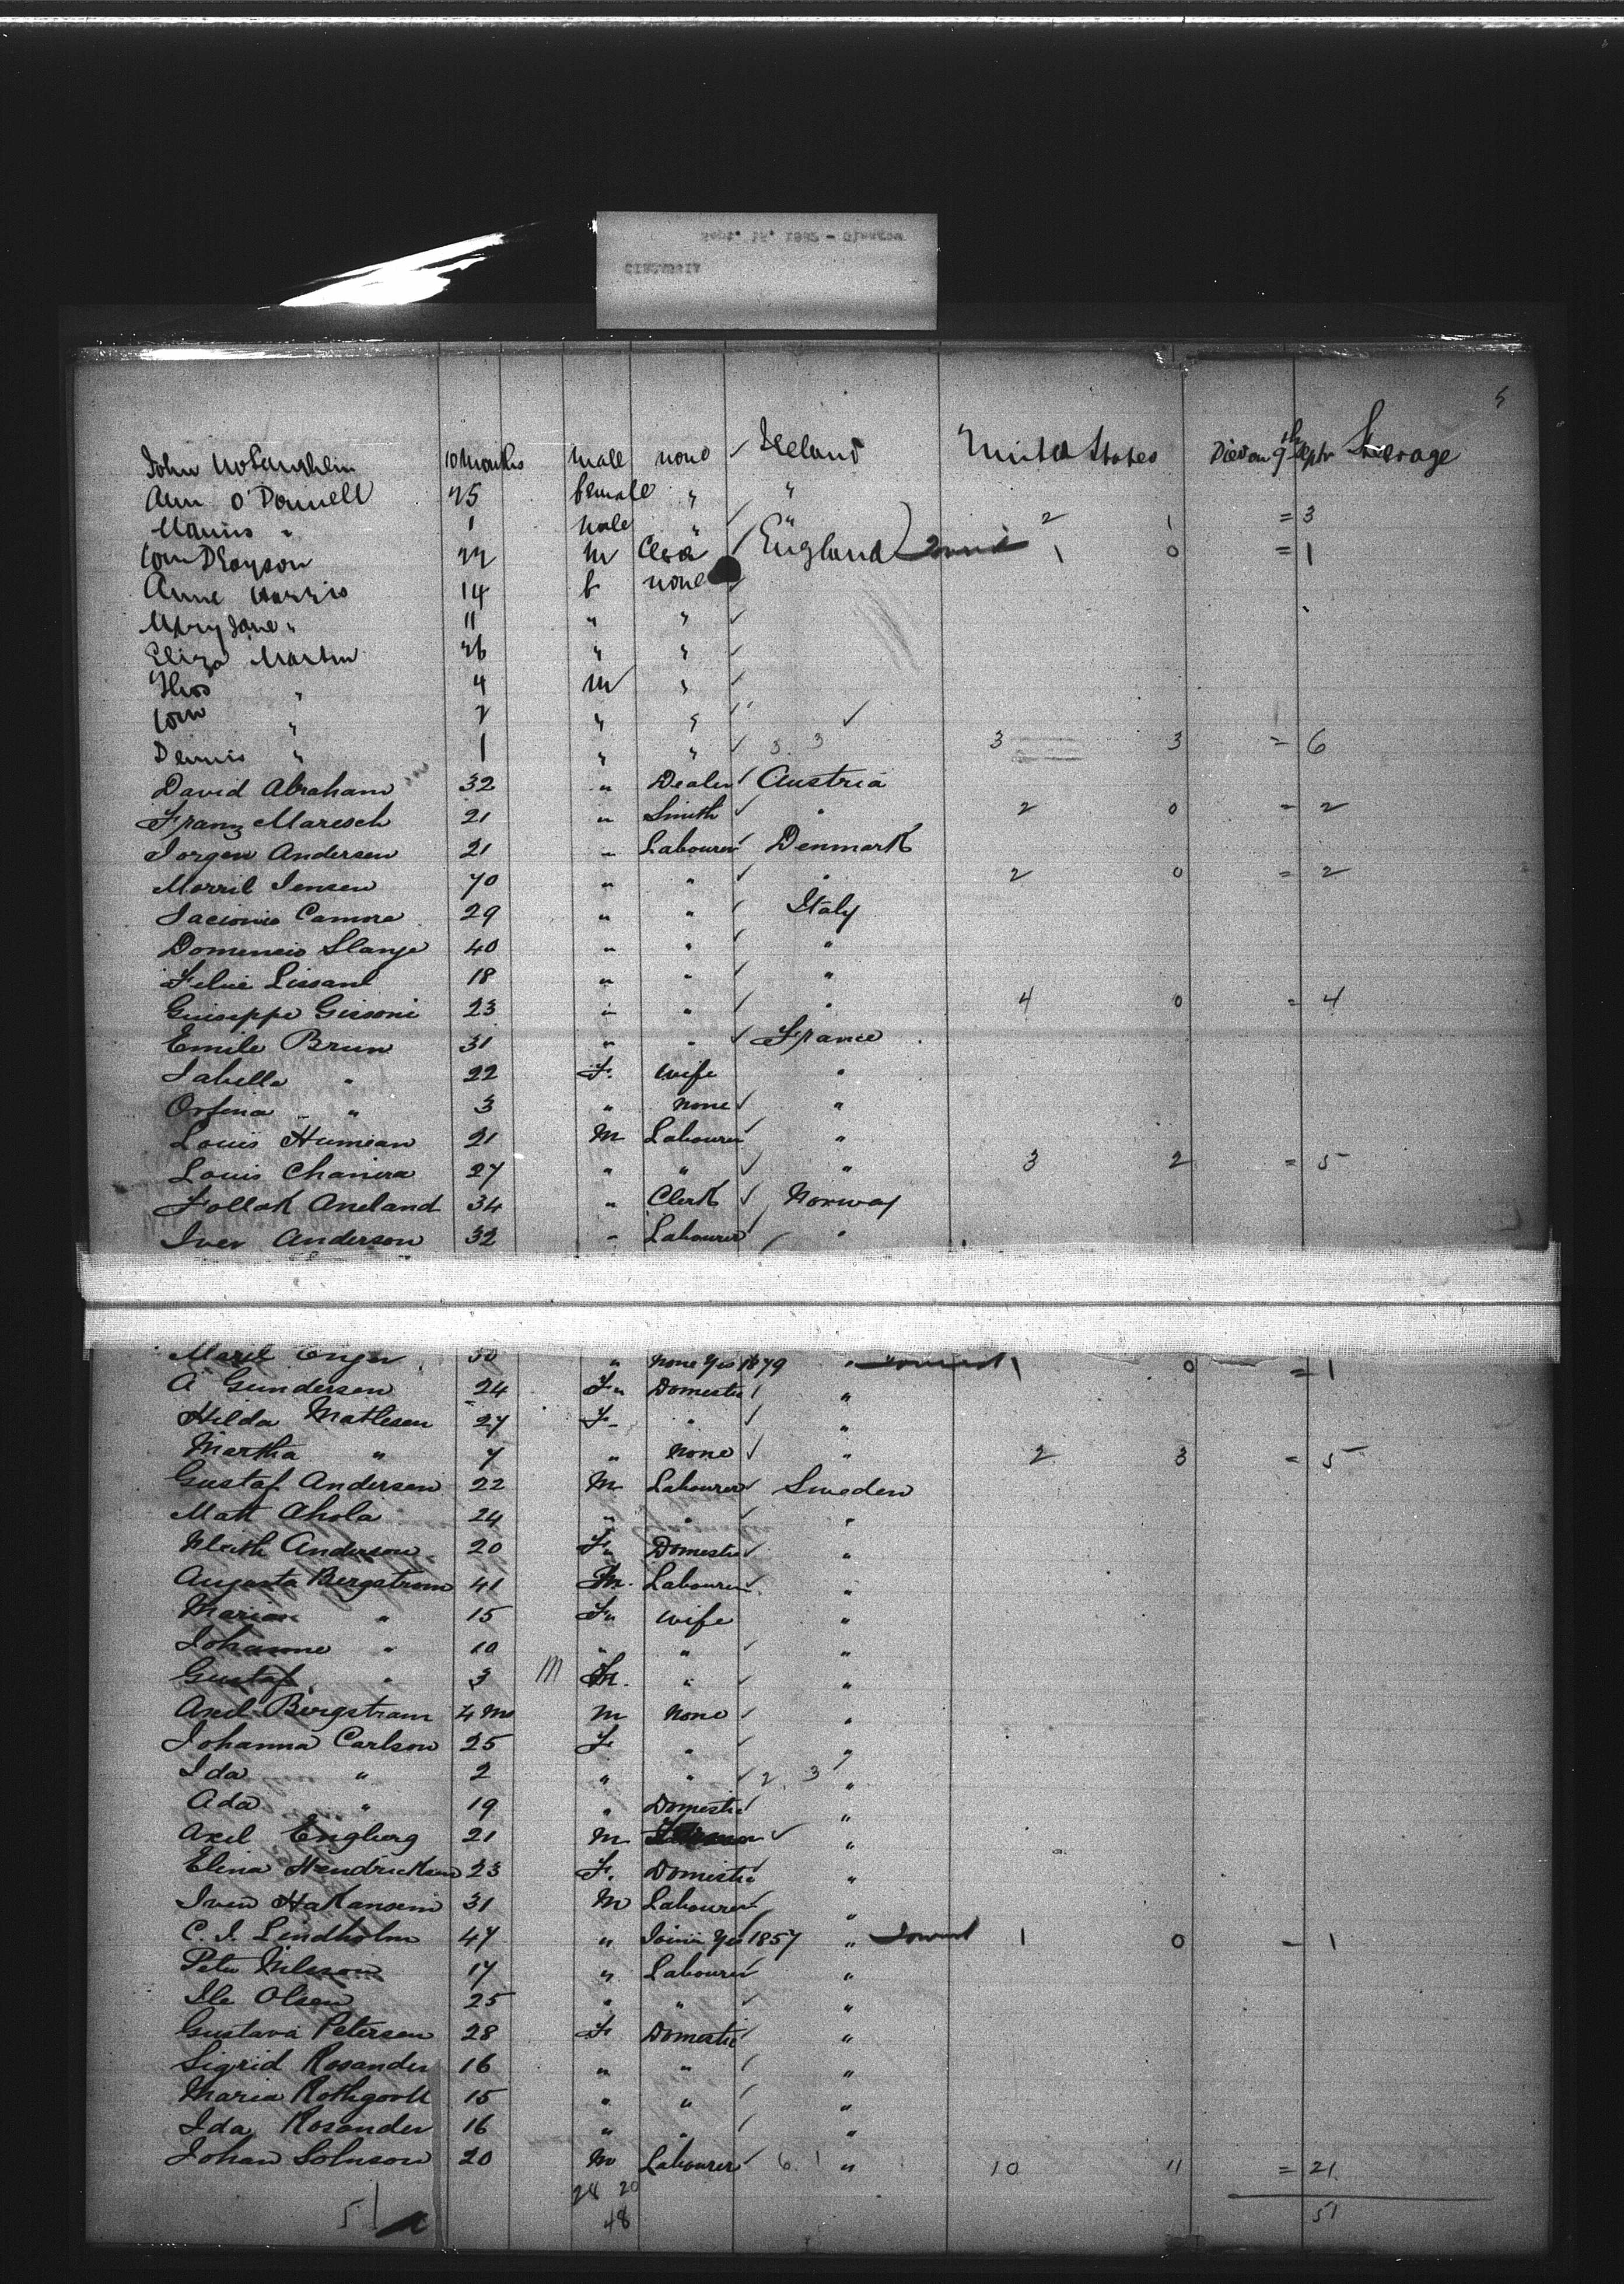 5
John McLaughlin 10 Months Male none ✓ Ireland United States Died on 9th Septr Steerage
Ann O'Donnell 25 female " "
Mannis " 1 Male " ✓ " 2 1 = 3
Wm Drayson 22 M Clerk ✓ England 1 0 = 1
Anne Harris 14 f none ✓
Mary Jane " 11 " " ✓
Eliza Martin 26 " " ✓
Thos " 4 M " ✓
Wm " 2 " " ✓ " ✓
Dennis " 1 " " ✓ 3. 3 3 3 = 6
David Abraham 32 " Dealer ✓ Austria
Franz Maresch 21 " Smith ✓ " 2 0 = 2
Jorgen Andersen 21 " Labourer ✓ Denmark
Morril Jensen 70 " " ✓ " 2 0 = 2
Camora 29 " " ✓ Italy
Slange 40 " " ✓ "
Lissanl 18 " " ✓ "
Guiseppe Gissoni 23 " " ✓ " 4 0 = 4
Emile Brun 31 " " ✓ France
Isabella " 22 F. Wife "
Orfina " 3 " None ✓ "
Louis Humean 21 M Labourer "
Louis Chanera 27 " " ✓ " 3 2 = 5
Follak Aneland 34 " Clerk ✓ Norway
Iver Anderson 32 " Labourer ✓ "
Enger 30 " None Yes 1879 " 1 0 = 1
A Gundersen 24 F " Domestic ✓ "
Hilda Mathesen 27 F " ✓ "
Martha " 7 " None ✓ " 2 3 = 5
Gustaf Andersen 22 M Labourer ✓ Sweden
Matt Ahola 24 " " ✓ "
Anderson 20 F " Domestic ✓ "
Augusta Bergstrom 41 M. Labourer ✓ "
Marian " 15 F " Wife "
Johanne " 10 " " ✓ "
Gustaf " 3 M " ✓ "
Axel Bergstrom 4 Ms M None ✓ "
Johanna Carlson 25 F " ✓ "
Ida " 2 " " ✓ 2. 3 "
Ada " 19 " Domestic ✓ "
Axel Engberg 21 M ✓ "
Elina Hendrickson 23 F. Domestic "
Iven Hakansem 31 M Labourer ✓ "
C. J. Lindholm 47 " Yes 1857 " 1 0 = 1
Peter Nilsson 17 " Labourer ✓ "
Ole Olsen 25 " " ✓ "
Gustava Petersen 28 F Domestic ✓ "
Sigrid Rosander 16 " " ✓ "
Maria 15 " " ✓ "
Ida Rosander 16 " " ✓ "
Johan Solnson 20 M Labourer ✓ 6. 1 " 10 11 = 21
28 20
51 48 51